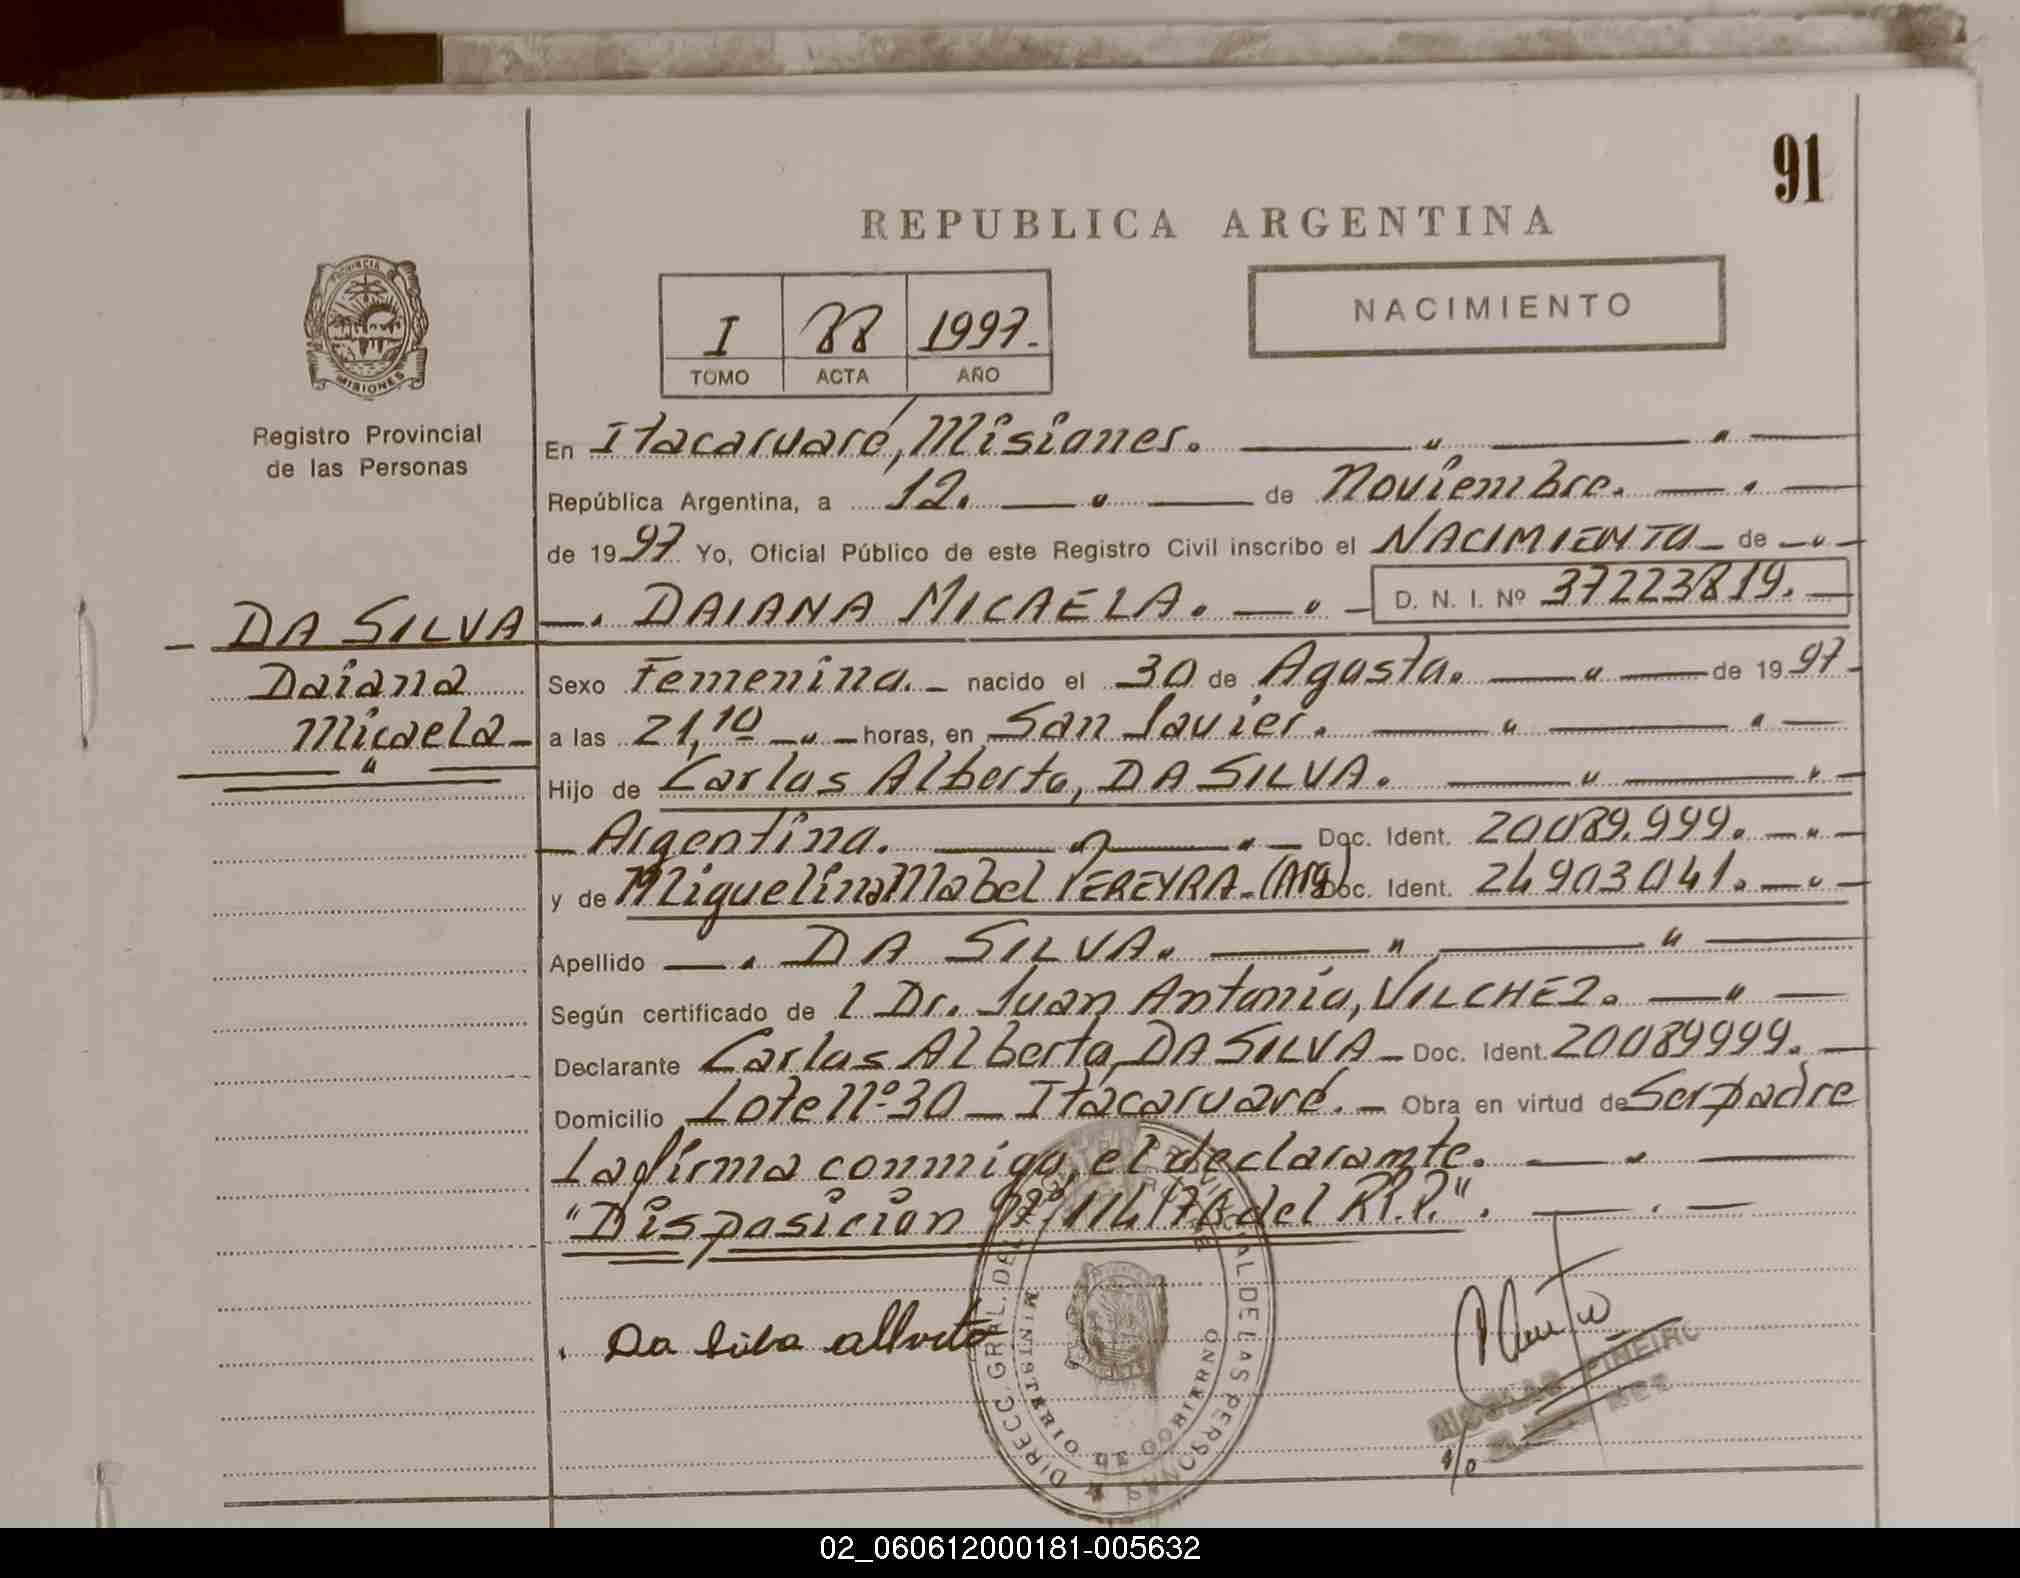 91
REPUBLICA ARGENTINA
PROVINCIA
MISIONES
Registro Provincial
de las Personas
NACIMIENTO
I 88 1997.
TOMO ACTA AÑO
En Itacaruaré, Misiones.
República Argentina, a 12. de Noviembre.
de 1997 Yo, Oficial Público de este Registro Civil inscribo el NACIMIENTO de
DA SILVA
Daiana
Micaela
DAIANA MICAELA. D. N. I. Nº 37223819.
Sexo Femenino. nacido el 30 de Agosto. de 1997
a las 21,10 horas, en San Javier.
Hijo de Carlos Alberto, DA SILVA.
Argentina. Doc. Ident. 20089.999.
y de Miguelina Mabel PEREYRA (Arg) Doc. Ident. 24903041.
Apellido DA SILVA.
Según certificado de l Dr. Juan Antonio, VILCHEZ.
Declarante Carlos Alberto, DA SILVA Doc. Ident. 20089999.
Domicilio Lote Nº 30 Itacaruaré. Obra en virtud de Ser padre
La firma conmigo, el declarante.
"Disposición Nº 114/76 del R.P.P."
Da Silva Alberto
DIRECC. GRAL. DEL REGISTRO PROVINCIAL DE LAS PERSONAS
MINISTERIO DE GOBIERNO
NICOLAS PIÑEIRO
02_060612000181-005632